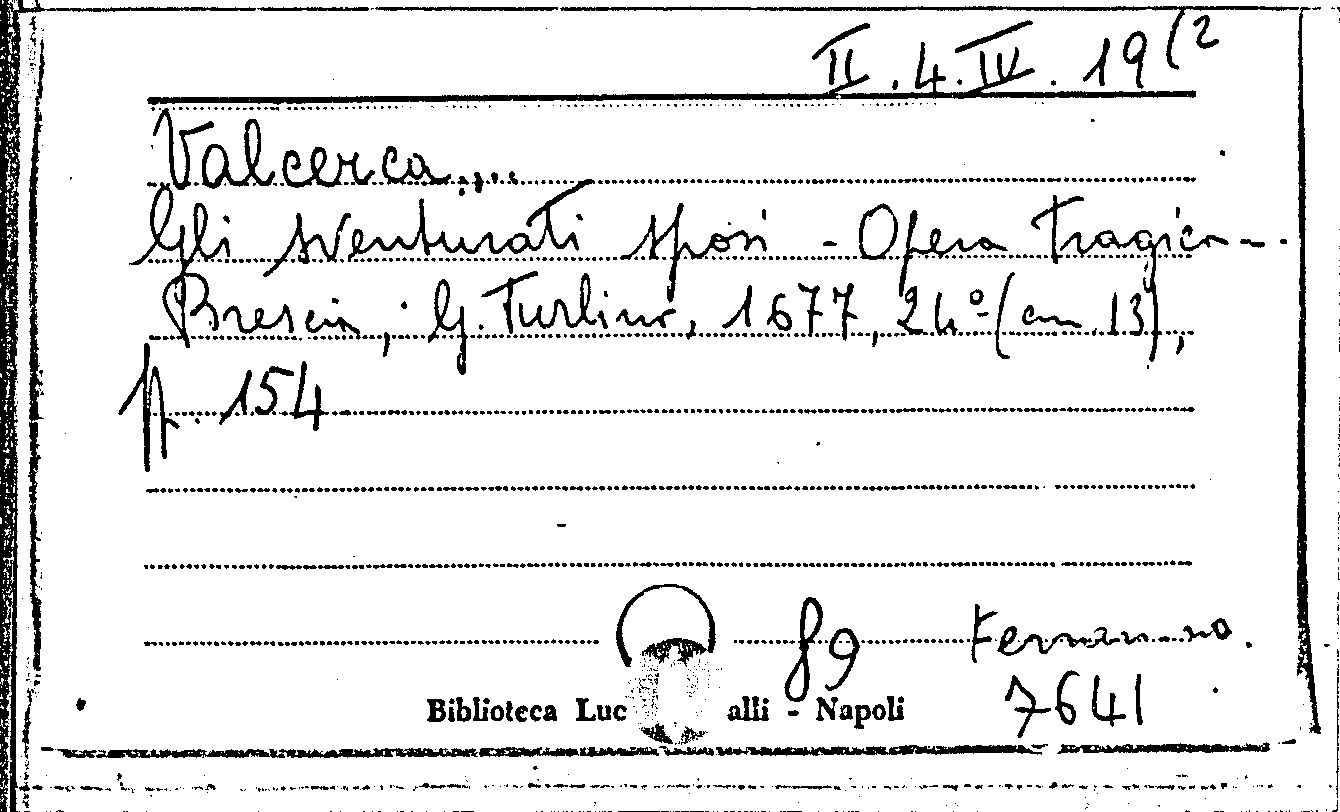 II.4.IV.19(2
Valcerca...
Gli sventurati sposi - Opera tragica -.
Brescia, G. Turlino, 1677, 24º (cm 13),
pp. 154
89 Fernan.no.
Biblioteca Luc alli - Napoli 7641